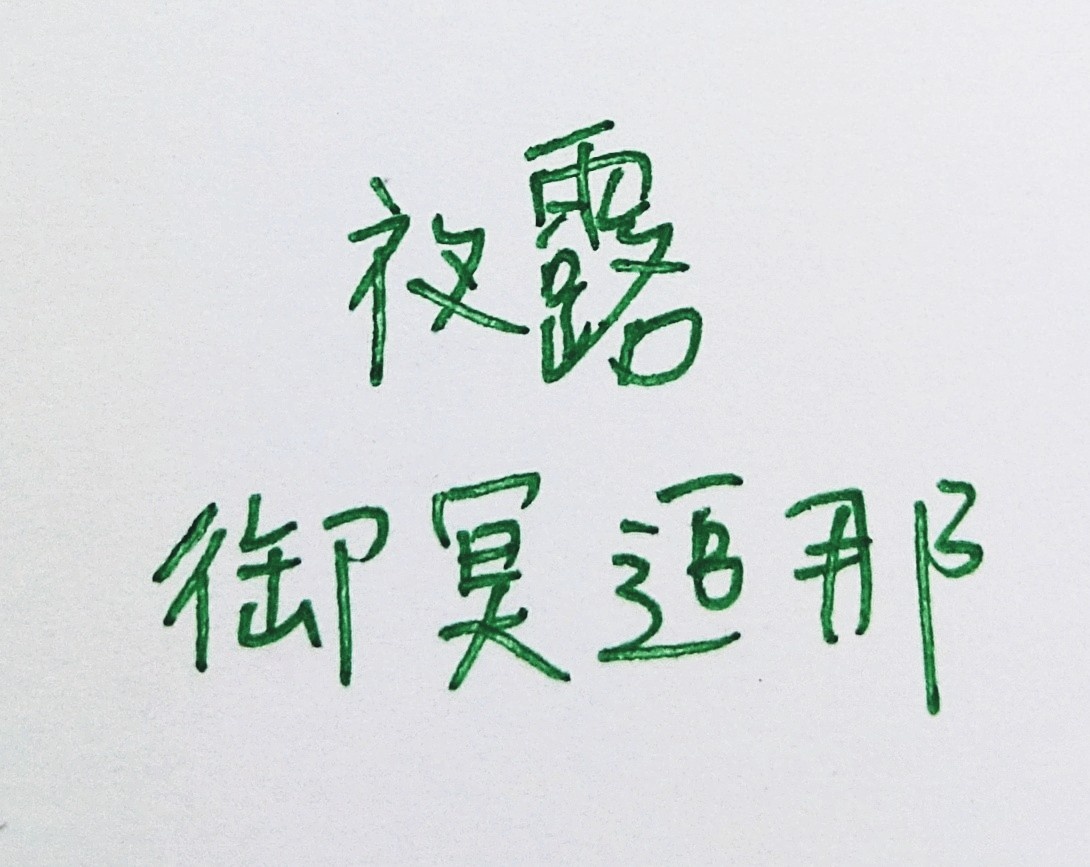 夜露
御冥逗那